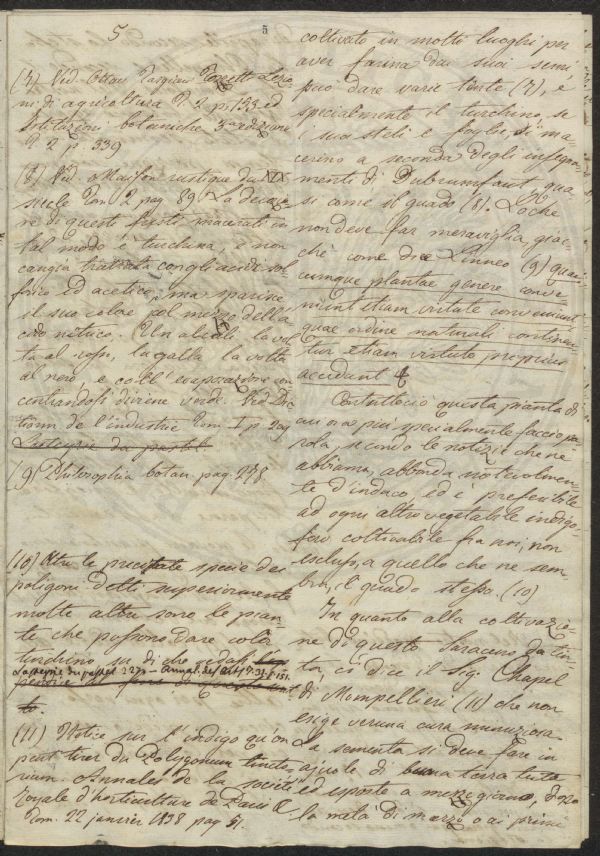 5
5
(7) Vid. Ottav. Targioni Tozzetti Lezio-
ni di agricoltura T. 2 p. 133 ed
Istituzioni botaniche 3ª edizione
T. 2 p. 339
(8) Vid. Maison rustique du XIX
siecle Tom 2 pag 89. La decozio-
ne di questi fusti macerati in
tal modo è turchina, e non
cangia trattata con gli acidi sol
forico ed acetico, ma sparisce
il suo colore pel mezzo dell'a
cido nitrico. Un alcali la vol
ta al roso, la galla la volta
al nero, e coll' evaporazione con
centrandosi diviene verde. Vid. Dic
tionn de l'industrie Tom. I p. 209
Lasteyrie du pastel
(9) Philosophia botan. pag. 278.
(10) Oltre le precitate specie de
poligoni detti superiormente
molte altre sono le pian-
te che possono dare color
turchino su di che vedasi
Lasteyrie du pastel 227
(11) Notice sur l'indigo qu'on
peut tirer du Polygonum tincto-
rium. Annales de la societé
royale d'horticulture de Paris
Tom. 22 janvier 1838 pag 51.
coltivato in molti luoghi per
aver farina dai suoi semi,
può dare varie tinte (7), e
specialmente il turchino, se
i suoi steli e foglie, si ma-
cerino a seconda degli insegna-
menti di Dubrunfaut, qua-
si come il guado (8). Loche
non deve far meraviglia, giac-
chè come dice Linneo (9) quae-
cumque plantae genere conve-
niunt etiam virtute conveniunt
quae ordine naturali continen-
tur etiam virtute propius
accedunt
Contuttociò questa pianta di
cui ora più specialmente faccio pa
rola, secondo le notizie che ne
abbiamo, abbonda notevolmen-
te d'indaco, ed è preferibile
ad ogni altro vegetabile indigo-
fero coltivabile fra noi, non
escluso, a quello che ne sem-
bra, il guado stesso. (10)
In quanto alla coltivazio-
ne di questo Saraceno da tin-
ta, ci dice il Sig. Chapel
di Mompellieri (11) che non
esige veruna cura minuziosa
La sementa si deve fare in
ajuole di buona terra tutta
ed esposta a mezzogiorno, dopo
la metà di marzo o ai primi